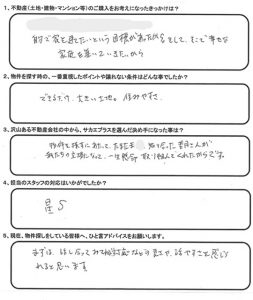 1、不動産(土地・建物・マンション等)のご購入をお考えになったきっかけは？
自分で家を建てたいという目標があったから そして、そこで幸せな
家庭を築いていきたいから
2、物件を探す時の、一番重視したポイントや譲れない条件はどんな事でしたか？
できるだけ、大きい土地。住みやすさ
3、沢山ある不動産会社の中から、サカエプラスを選んだ決め手になった事は？
物件を探すにあたって、たまたま 知り合った 担当さんが
私たちの立場になって、一生懸命 取り組んでくれたからです。
4、担当のスタッフの対応はいかがでしたか？
星5
5、現在、物件探しをしている皆様へ、ひと言アドバイスをお願いします。
まずは、話し合ってみて
と思います